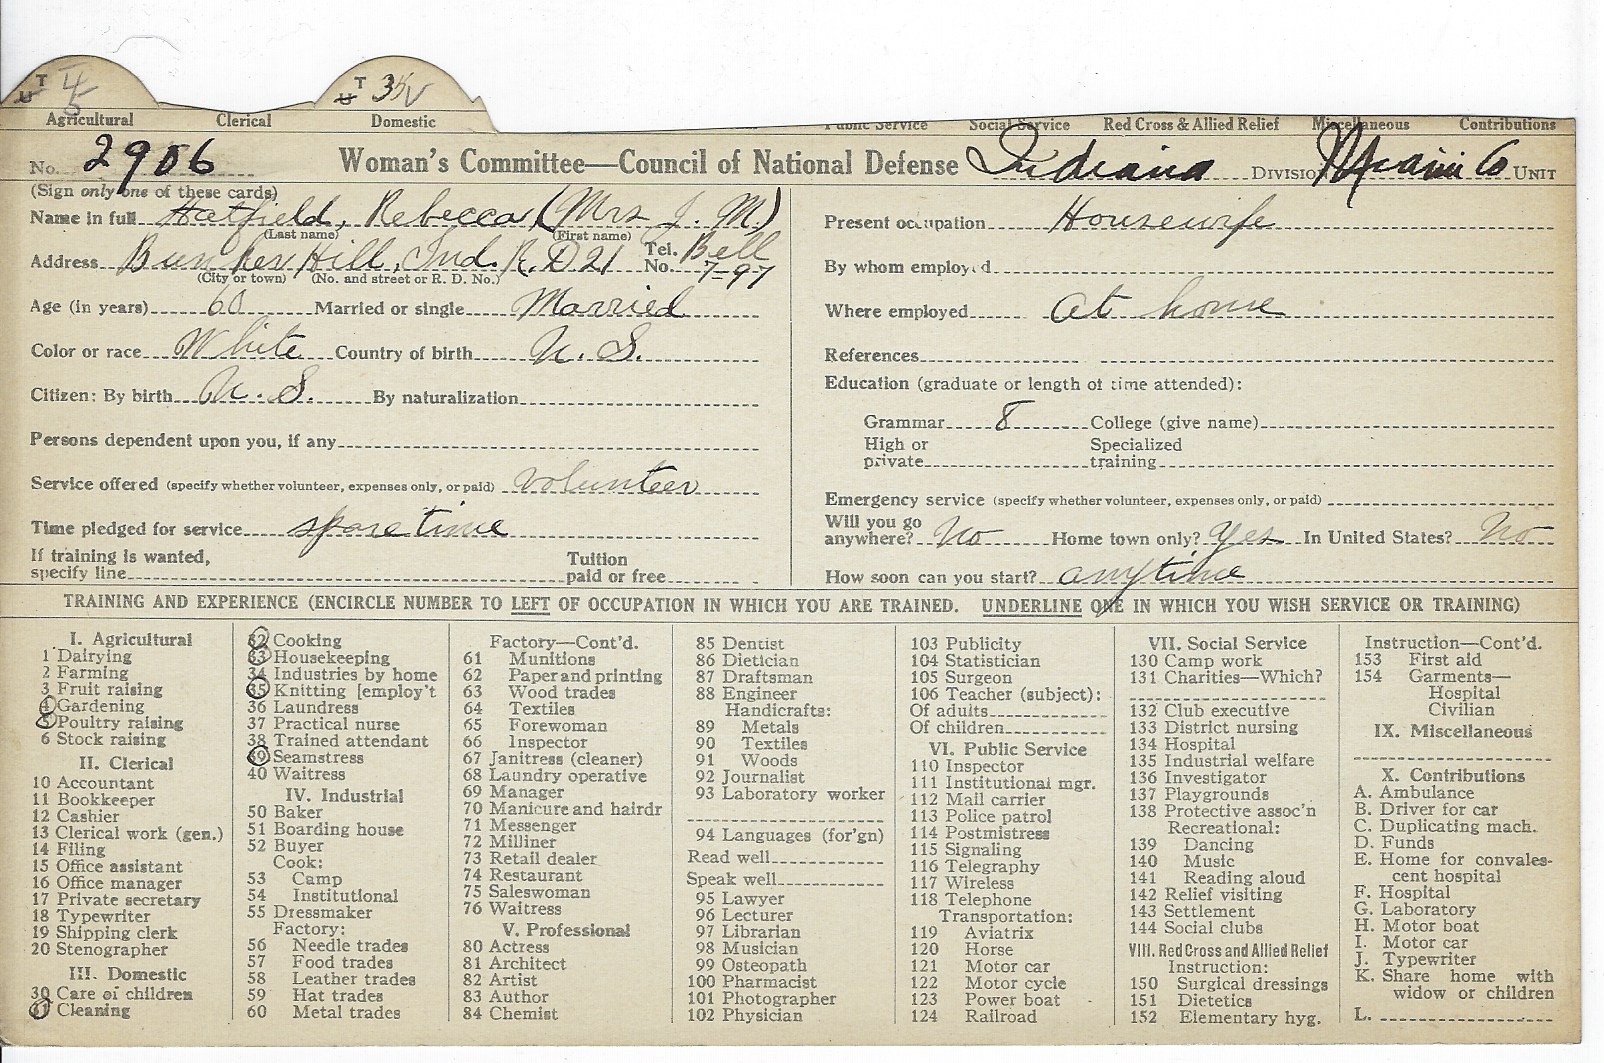 T 4 T 3
U 5 U
Agricultural Clerical Domestic Public Service Social Service Red Cross & Allied Relief Miscellaneous Contributions
No. 2906 Woman's Committee—Council of National Defense Indiana Division Miami Co Unit
(Sign only one of these cards)
Name in full Hatfield, Rebecca (Mrs J. M.)
(Last name) (First name)
Address Bunker Hill, Ind. R. D 21 Tel. No. Bell 7-97
(City or town) (No. and street or R. D. No.)
Age (in years) 60 Married or single Married
Color or race White Country of birth U. S.
Citizen: By birth U. S. By naturalization
Persons dependent upon you, if any
Service offered (specify whether volunteer, expenses only, or paid) volunteer
Time pledged for service spare time
If training is wanted, specify line Tuition paid or free
Present occupation Housewife
By whom employed
Where employed at home
References
Education (graduate or length of time attended):
Grammar 8 College (give name)
High or private Specialized training
Emergency service (specify whether volunteer, expenses only, or paid)
Will you go anywhere? No Home town only? yes In United States? No
How soon can you start? anytime
TRAINING AND EXPERIENCE (ENCIRCLE NUMBER TO LEFT OF OCCUPATION IN WHICH YOU ARE TRAINED. UNDERLINE ONE IN WHICH YOU WISH SERVICE OR TRAINING)
I. Agricultural
1 Dairying
2 Farming
3 Fruit raising
4 Gardening
5 Poultry raising
6 Stock raising
II. Clerical
10 Accountant
11 Bookkeeper
12 Cashier
13 Clerical work (gen.)
14 Filing
15 Office assistant
16 Office manager
17 Private secretary
18 Typewriter
19 Shipping clerk
20 Stenographer
III. Domestic
30 Care of children
31 Cleaning
32 Cooking
33 Housekeeping
34 Industries by home
35 Knitting [employ't
36 Laundress
37 Practical nurse
38 Trained attendant
39 Seamstress
40 Waitress
IV. Industrial
50 Baker
51 Boarding house
52 Buyer
Cook:
53 Camp
54 Institutional
55 Dressmaker
Factory:
56 Needle trades
57 Food trades
58 Leather trades
59 Hat trades
60 Metal trades
Factory—Cont'd.
61 Munitions
62 Paper and printing
63 Wood trades
64 Textiles
65 Forewoman
66 Inspector
67 Janitress (cleaner)
68 Laundry operative
69 Manager
70 Manicure and hairdr
71 Messenger
72 Milliner
73 Retail dealer
74 Restaurant
75 Saleswoman
76 Waitress
V. Professional
80 Actress
81 Architect
82 Artist
83 Author
84 Chemist
85 Dentist
86 Dietician
87 Draftsman
88 Engineer
Handicrafts:
89 Metals
90 Textiles
91 Woods
92 Journalist
93 Laboratory worker
94 Languages (for'gn)
Read well
Speak well
95 Lawyer
96 Lecturer
97 Librarian
98 Musician
99 Osteopath
100 Pharmacist
101 Photographer
102 Physician
103 Publicity
104 Statistician
105 Surgeon
106 Teacher (subject):
Of adults
Of children
VI. Public Service
110 Inspector
111 Institutional mgr.
112 Mail carrier
113 Police patrol
114 Postmistress
115 Signaling
116 Telegraphy
117 Wireless
118 Telephone
Transportation:
119 Aviatrix
120 Horse
121 Motor car
122 Motor cycle
123 Power boat
124 Railroad
VII. Social Service
130 Camp work
131 Charities—Which?
132 Club executive
133 District nursing
134 Hospital
135 Industrial welfare
136 Investigator
137 Playgrounds
138 Protective assoc'n
Recreational:
139 Dancing
140 Music
141 Reading aloud
142 Relief visiting
143 Settlement
144 Social clubs
VIII. Red Cross and Allied Relief
Instruction:
150 Surgical dressings
151 Dietetics
152 Elementary hyg.
Instruction—Cont'd.
153 First aid
154 Garments—
Hospital
Civilian
IX. Miscellaneous
X. Contributions
A. Ambulance
B. Driver for car
C. Duplicating mach.
D. Funds
E. Home for convales-
cent hospital
F. Hospital
G. Laboratory
H. Motor boat
I. Motor car
J. Typewriter
K. Share home with
widow or children
L.